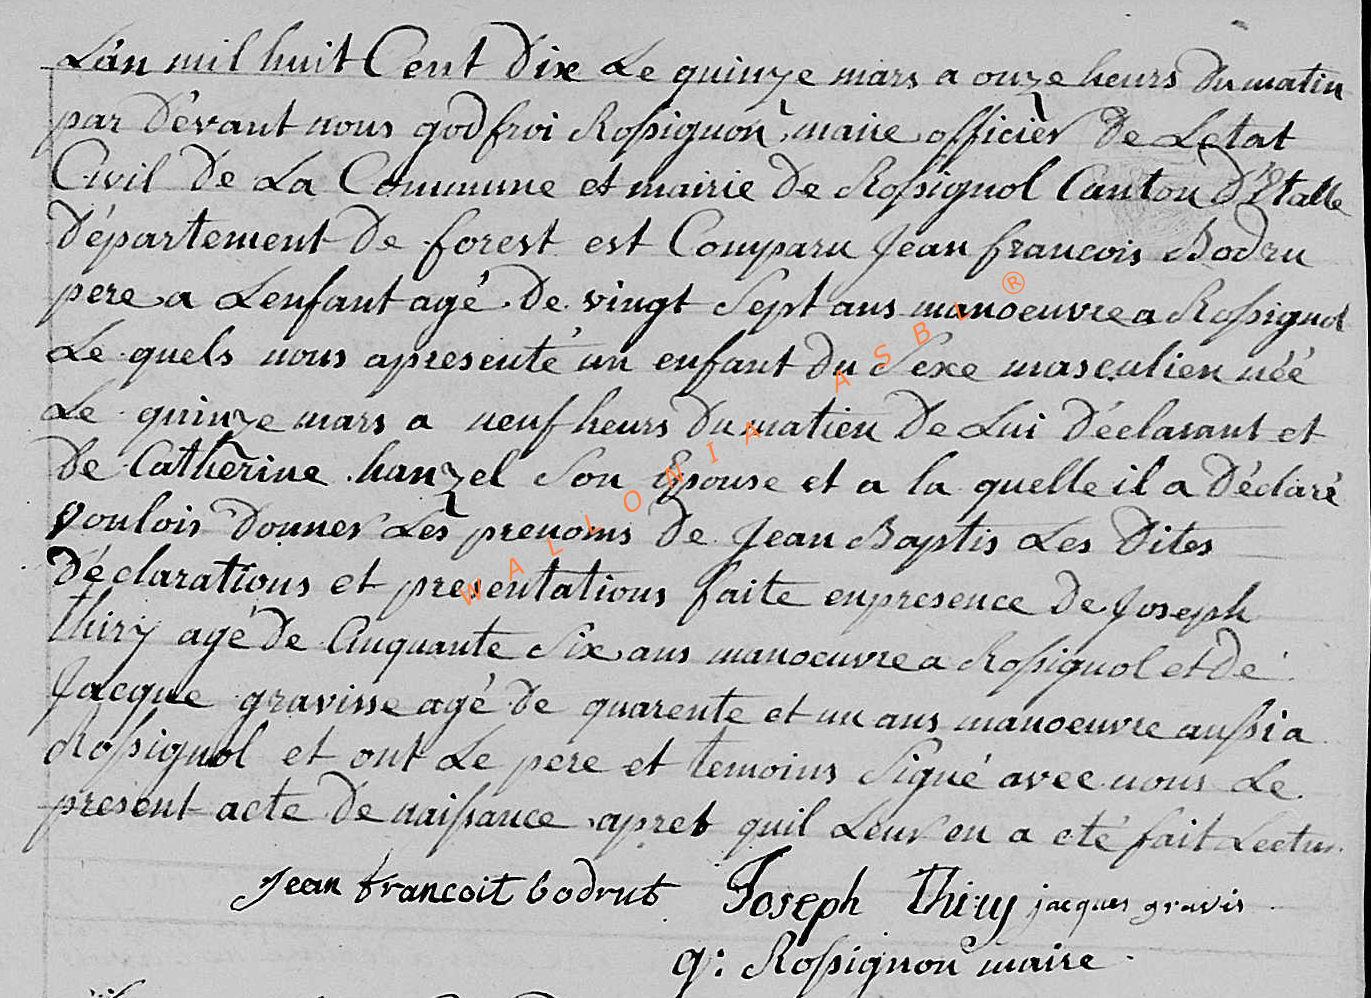 L'an mil huit Cent Dix Le quinze mars a onze heurs Du matin
par Dévant nous godfroi Rossignon maire officier De Letat
Civil De La Commune et mairie De Rossignol Canton D'Etalle
Département De forest est Comparu Jean francois Bodru
pere a Lenfant agé De vingt Sept ans manoeuvre a Rossignol
Le quels nous apresenté un enfant Du Sexe masculien néé
Le quinze mars a neuf heurs Du matien De Lui Déclarant et
De Catherine hanzel Son Epouse et a la quelle il a Déclaré
vouloir Donner Les prenoms De Jean Baptis Les Dites
Déclarations et presentations faite enpresence De Joseph
thiry agé De Cinquante Six ans manoeuvre a Rossignol et De
Jacque gravisse agé De quarente et un ans manoeuvre aussi a
Rossignol et ont Le pere et temoins Signé avec nous Le
present acte De naissance apret quil Leur en a eté fait Lectur
Jean francoit bodrut Joseph Thiry jacques gravis
g: Rossignon maire
WALLONIA ASBL ®